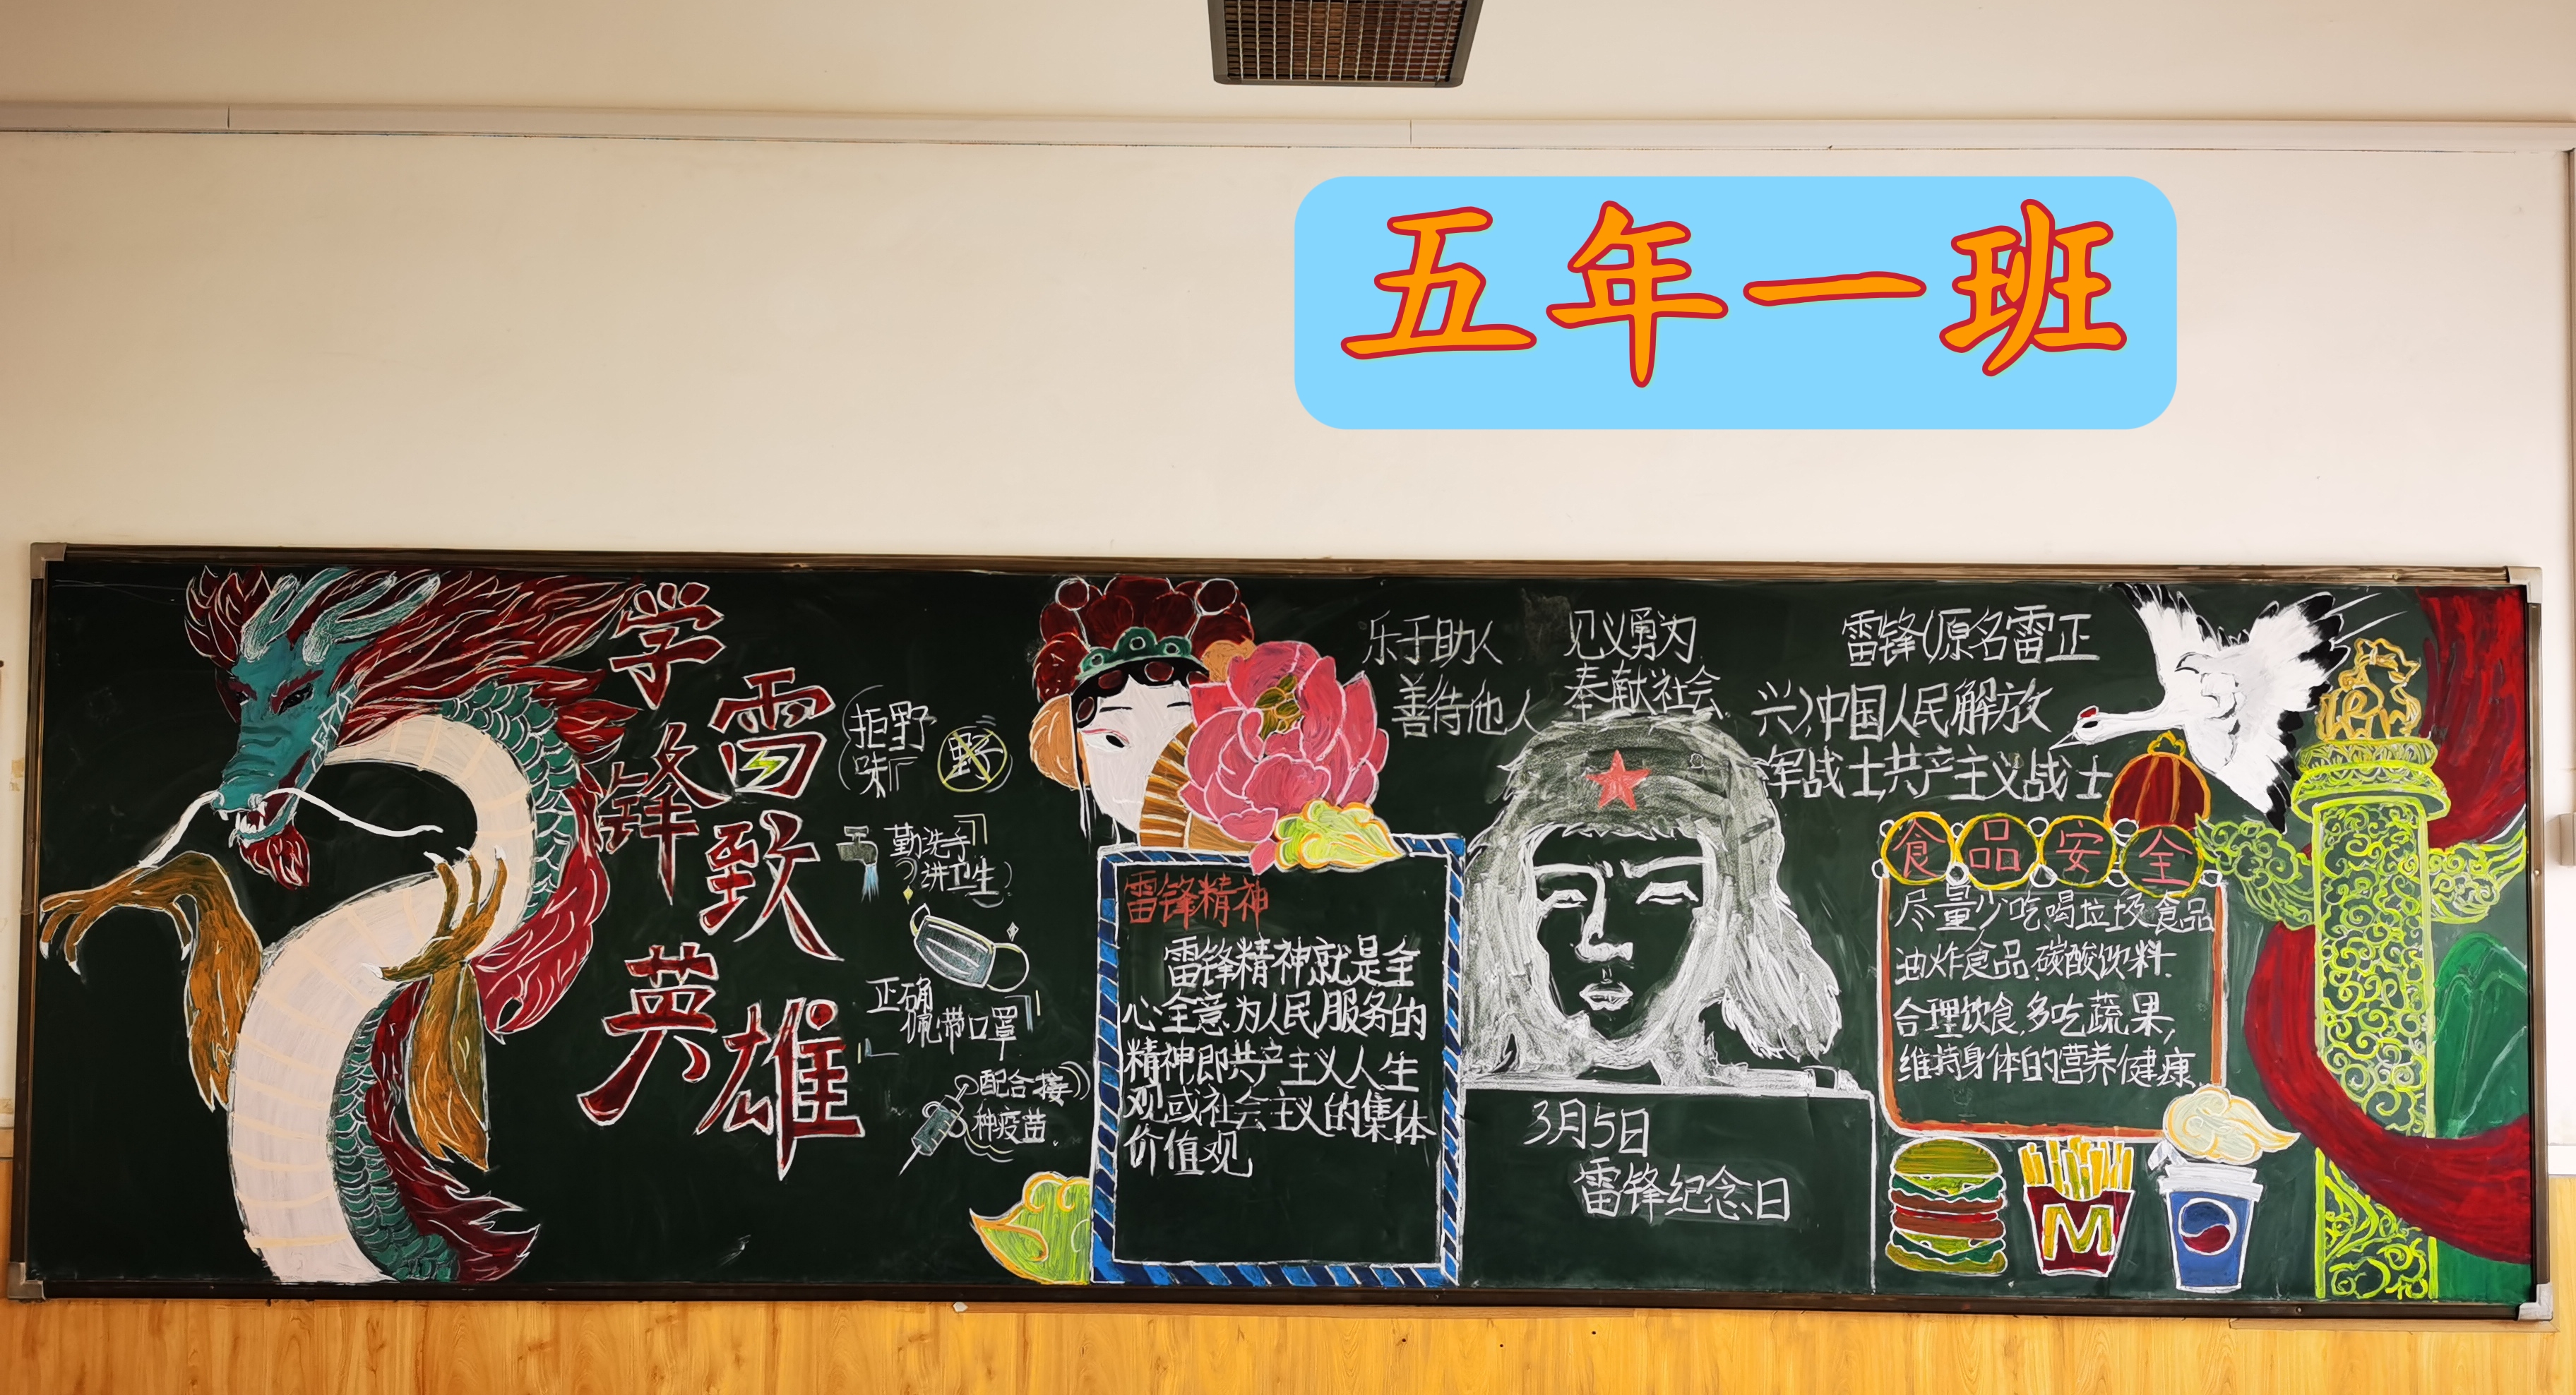 五年一班
学
雷
锋
致
英
雄
拒野
味厂
野
勤洗手
讲卫生
正确
佩带口罩
配合接
种疫苗
雷锋精神
雷锋精神就是全
心全意为人民服务的
精神即共产主义人生
观或社会主义的集体
价值观
乐于助人
善待他人
见义勇为
奉献社会
雷锋(原名雷正
兴)中国人民解放
军战士共产主义战士
3月5日
雷锋纪念日
食品安全
尽量少吃喝垃圾食品
油炸食品.碳酸饮料.
合理饮食,多吃蔬果,
维持身体的营养健康.
M